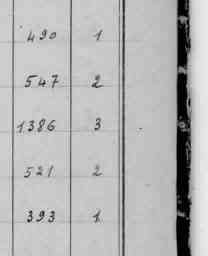 490 1
547 2
1386 3
521 2
393 1